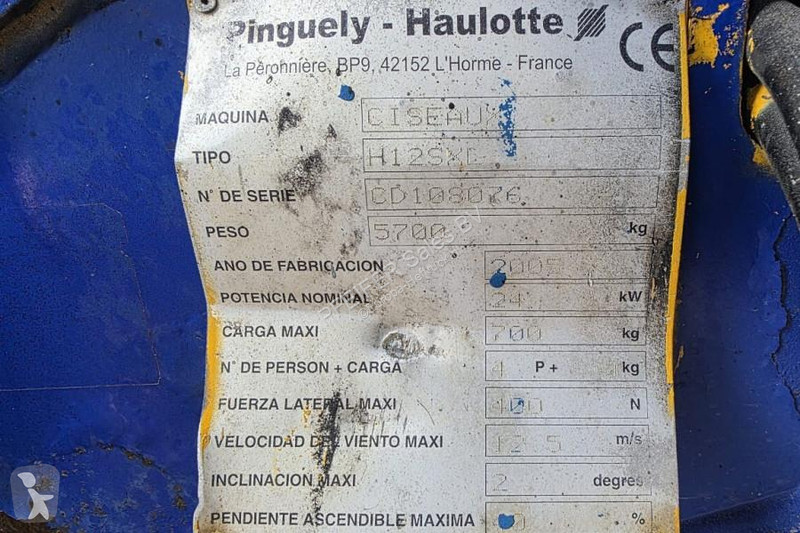 Pinguely - Haulotte CE
La Péronnière, BP9, 42152 L'Horme - France
MAQUINA CISEAUX
TIPO H12SXL
N° DE SERIE CD108076
PESO 5700 kg
ANO DE FABRICACION 2005
POTENCIA NOMINAL 24 kW
CARGA MAXI 700 kg
N° DE PERSON + CARGA 4 P + kg
FUERZA LATERAL MAXI 400 N
VELOCIDAD DEL VIENTO MAXI 12.5 m/s
INCLINACION MAXI 2 degres
PENDIENTE ASCENDIBLE MAXIMA %